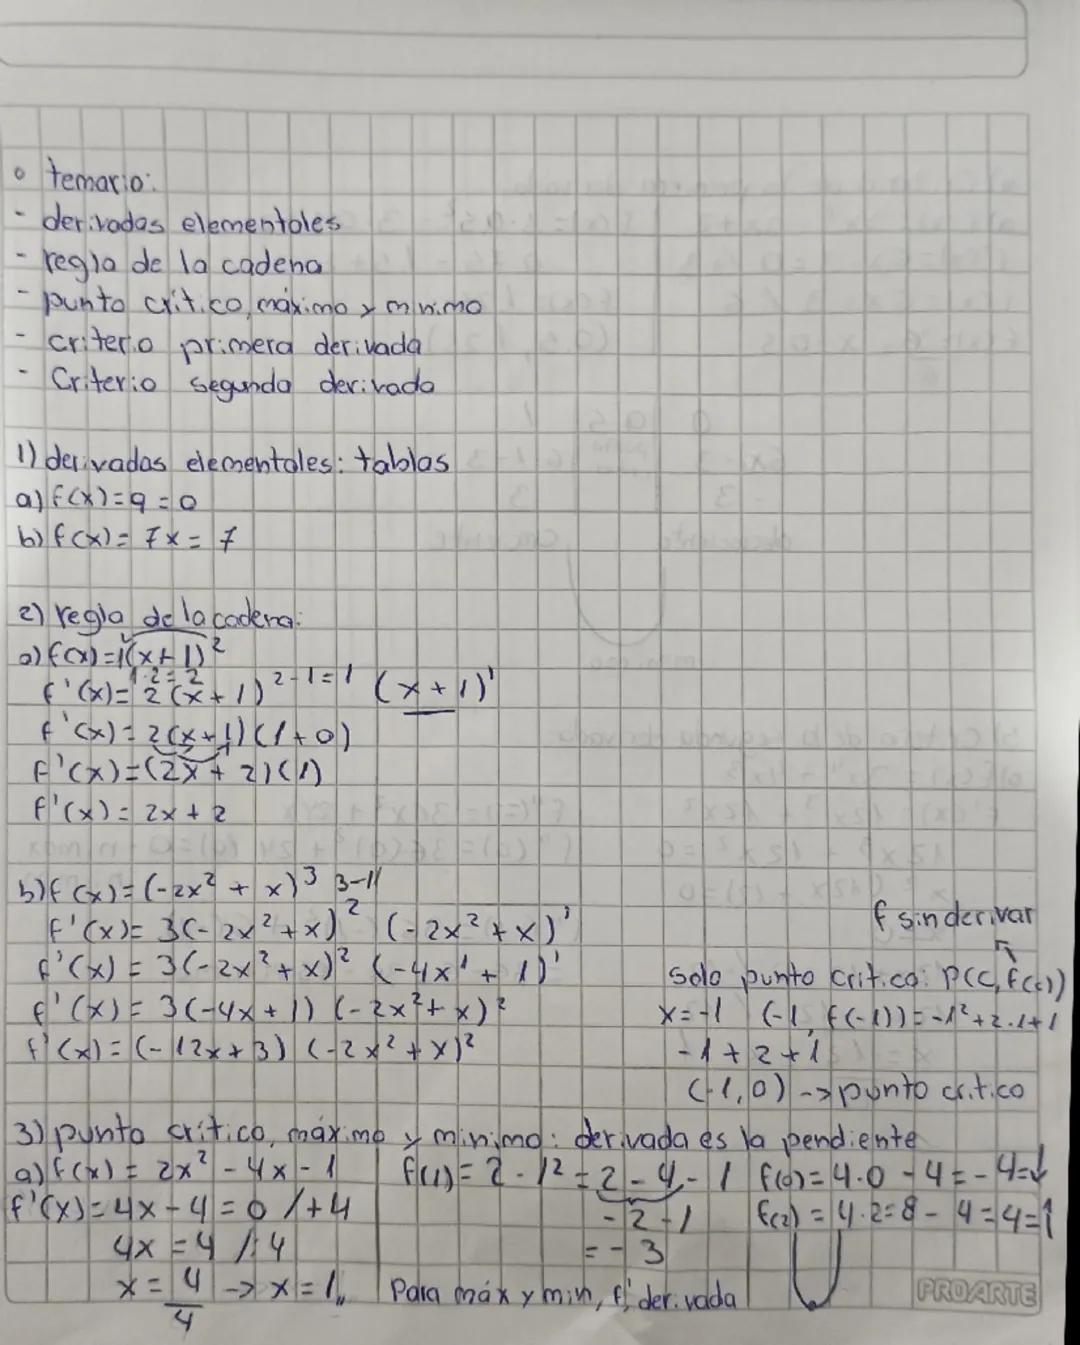 ° temario:
- derivadas elementales
- regla de la cadena
- punto crítico, máximo y mínimo
- criterio primera derivada
- Criterio segunda derivada
1) derivadas elementales: tablas
a) f(x)=9=0
b) f(x)= 7x = 7
2) regla de la cadena:
a) f(x)=1(x+1)²
1·2=2
f'(x)= 2(x+1)²⁻¹⁼¹ (x+1)'
f'(x)= 2(x+1)(1+0)
f'(x)=(2x+2)(1)
f'(x)= 2x+2
b) f(x)=(-2x² + x)³ 3-1
f'(x)= 3(-2x²+x)² (-2x²+x)'
f'(x) = 3(-2x²+x)² (-4x¹ + 1)'
f'(x) = 3(-4x+1) (-2x²+x)²
f'(x) = (-12x+3) (-2x²+x)²
f sin derivar
solo punto crítico: P(c, f(c))
x=-1 (-1, f(-1))=-1²+2·1+1
-1+2+1
(-1,0) -> punto crítico
3) punto crítico, máximo y mínimo: derivada es la pendiente
a) f(x) = 2x² - 4x - 1
f'(x)= 4x - 4 = 0 /+4
4x = 4 /:4
x = 4/4 -> x = 1
f(1)= 2·1² = 2 - 4 - 1
-2-1
= -3
Para máx y min, f' derivada
f(0)= 4·0 - 4 = -4=↓
f(2) = 4·2=8 - 4 = 4=↑
PROARTE